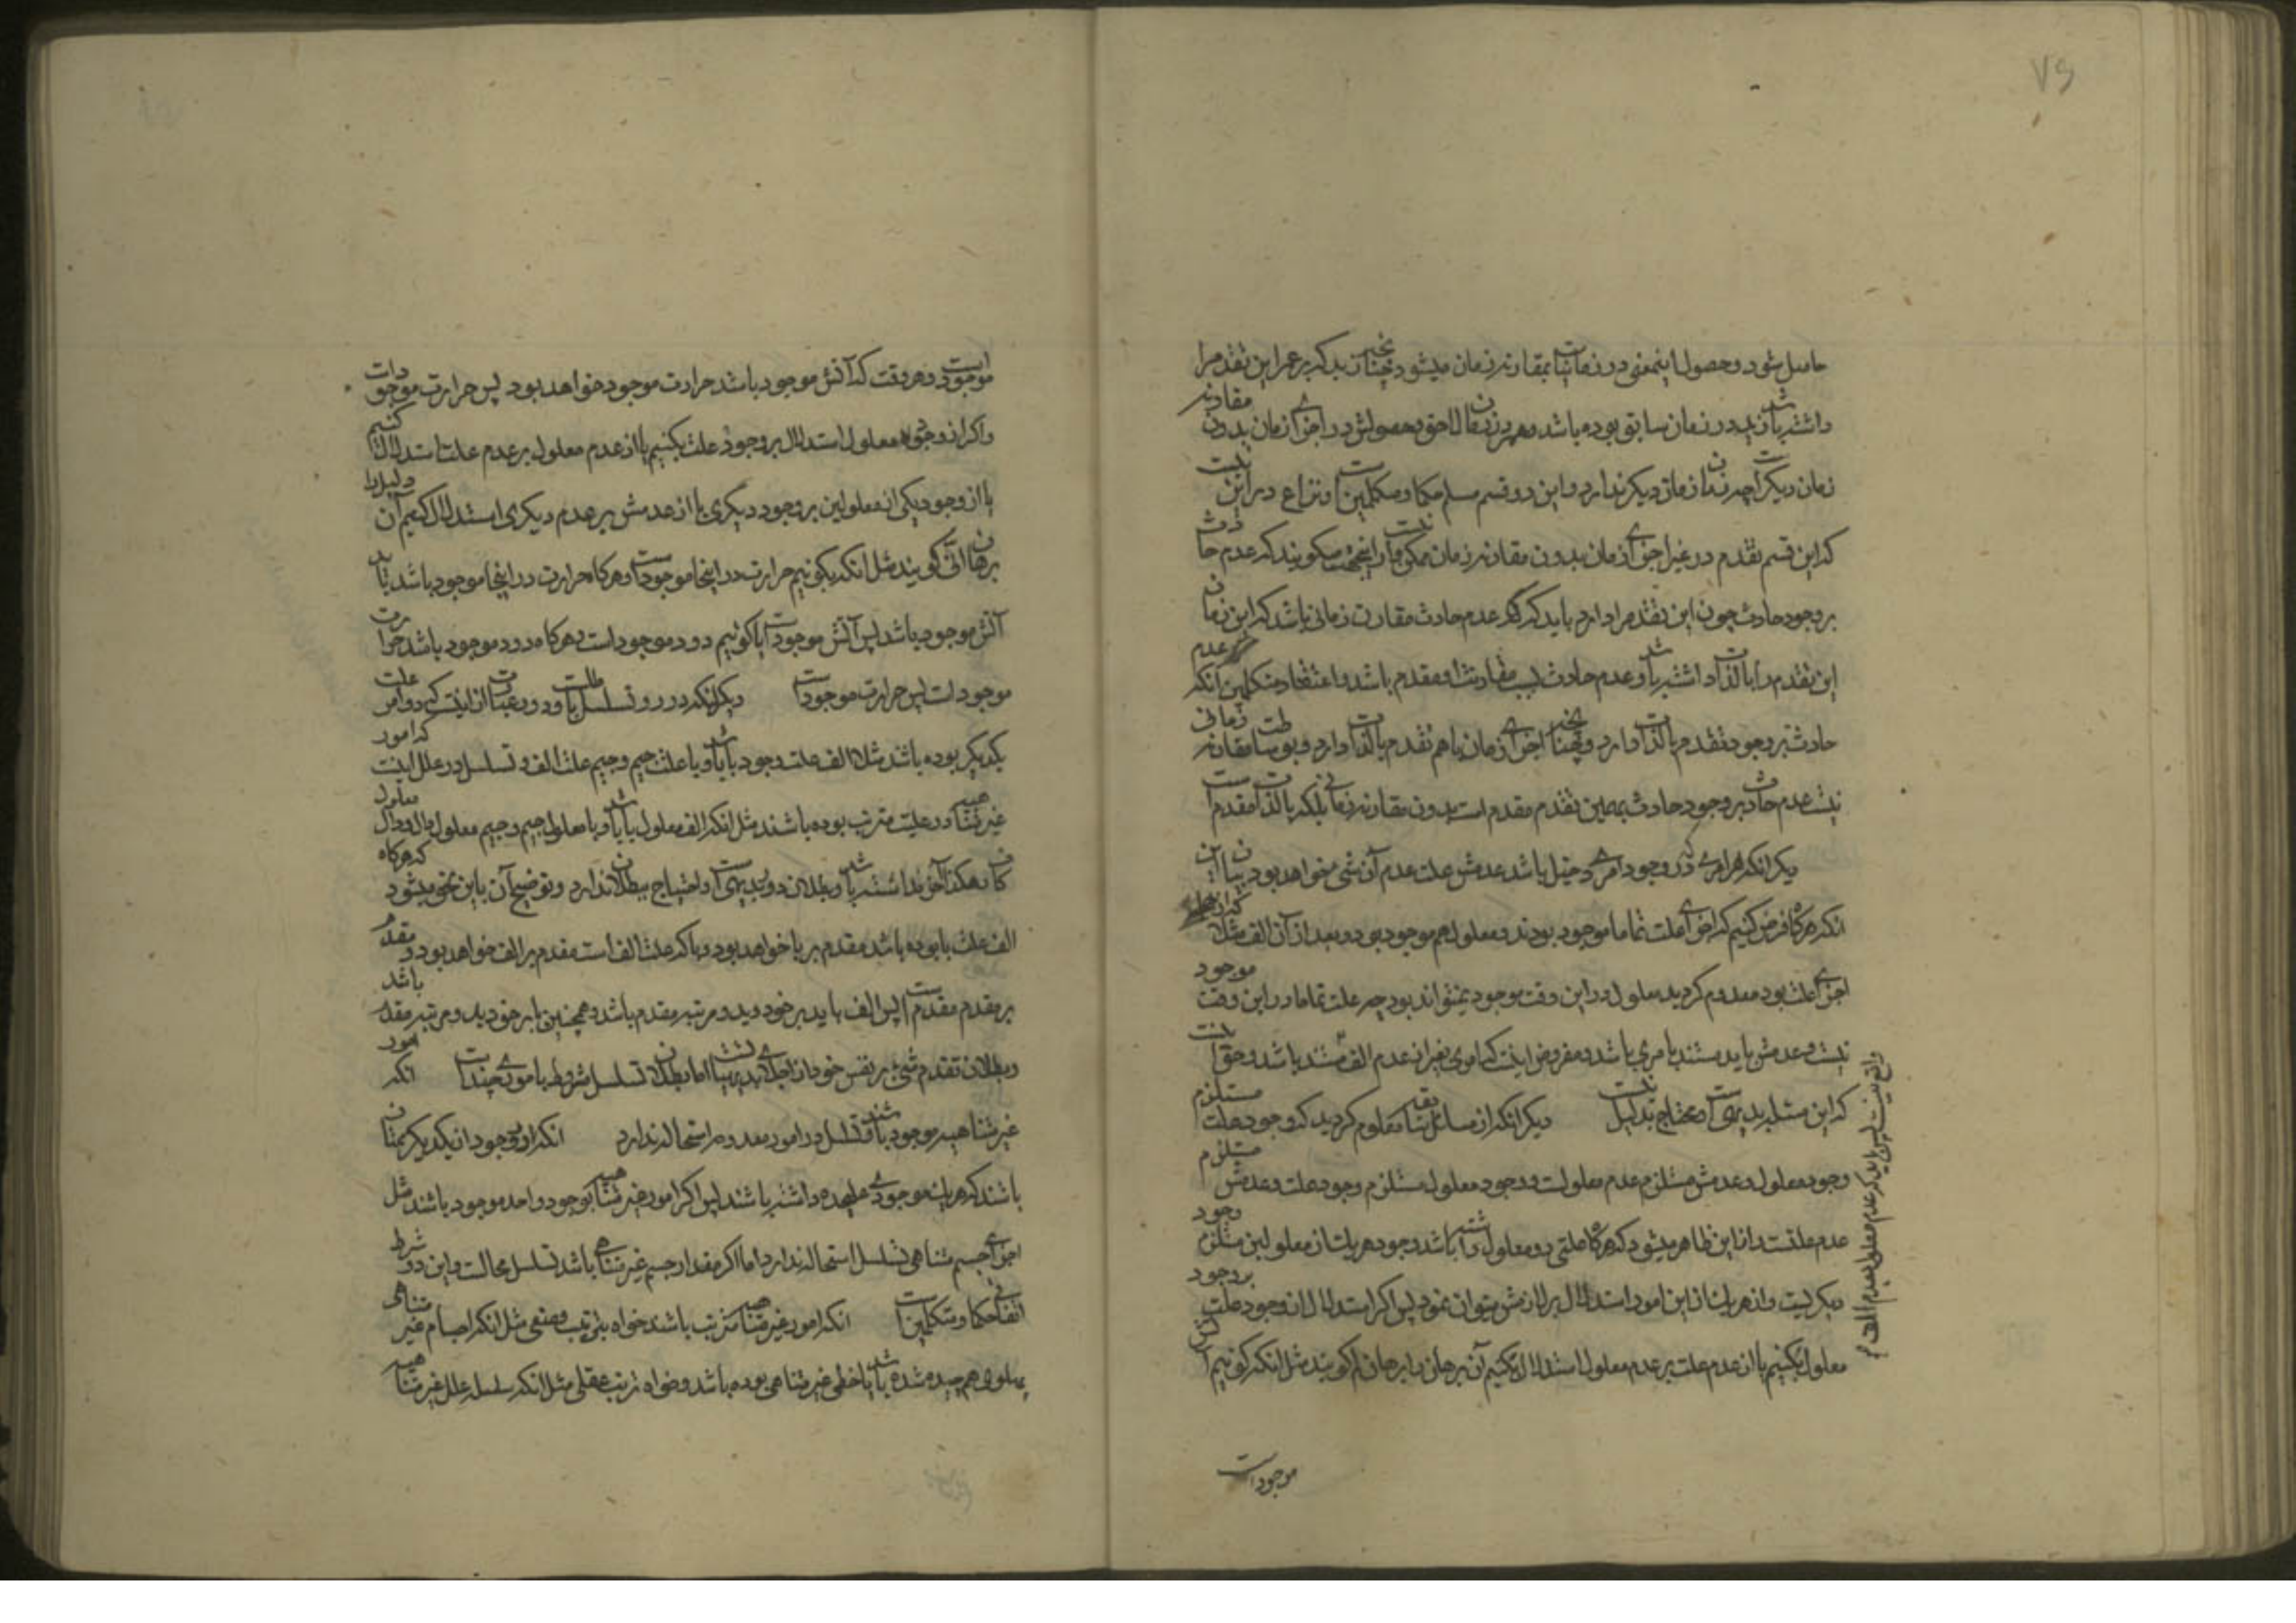 ۷۶
حاصل شود و حصول اینمعنی در زمانیات بمقارنه زمان میشود همچنانچه بدکه بر عمرا این تقدم را
داشته باشد زید در زمان سابق بوده باشد و عمرو در زمان لاحق و حصولش در اجزای زمان بدون مقارنه
زمان دیگر است چه زمان زمان دیگر ندارد و این دو قسم مسلم حکما و متکلمین است و نزاع در این است
که این قسم تقدم در غیر اجزای زمان بدون مقارنه زمان ممکن است یا نه حکما میگویند که عدم حادث
بر وجود حادث چون این تقدم را دارد باید که عدم حادث مقارن زمانی باشد که این زمان
این تقدم را بالذات داشته باشد و عدم حادث بسبب مقارنت او مقدم باشد و اعتقاد متکلمین آنکه عدم
حادث بر وجود تقدم بالذات دارد و همچنانچه اجزای زمان با هم تقدم بالذات دارد و بوساطت مقارنه زمانی
نیست عدم حادث بر وجود حادث بهمین تقدم مقدم است بدون مقارنه زمانی بلکه بالذات مقدم است
دیگر آنکه هر امری که در وجود امری دخیل باشد عدمش علت عدم آن شی خواهد بود بیان آن
آنکه هرگاه فرض کنیم که اجزای علت تماما موجود بودند و معلول هم موجود بود و بعد از آن الف مثلا که از
اجزای علت بود معدوم گردید معلول در این وقت موجود نمیتواند بود چه علت تماما در این وقت موجود
نیست و عدمش باید مستند بامری باشد و مفروض اینست که امری بغیر از عدم الف نیست مستند باشد و حق آنست
که این مسئله بدیهی است و محتاج بدلیل نیست دیگر آنکه از مسائل سابقه معلوم گردید که وجود علت مستلزم
وجود معلول و عدمش مستلزم عدم معلولست و وجود معلول مستلزم وجود علت و عدمش مستلزم
عدم علتست و از این ظاهر میشود که هرگاه علتی دو معلول داشته باشد وجود هر یک از معلولین مستلزم وجود
دیگریست و از هر یک از این امور استدلال بر لازمش میتوان نمود پس اگر استدلال از وجود علت بر وجود
معلول بکنیم یا از عدم علت بر عدم معلول استدلال بکنیم آن برهان را برهان لم گویند مثل آنکه گوئیم آتش
واقع نیست پس باید که عدم معلول بعدم الف
موجود است
موجود است و هر وقت که آتش موجود باشد حرارت موجود خواهد بود پس حرارت موجود است
و اگر از وجود معلول استدلال بر وجود علت بکنیم یا از عدم معلول بر عدم علت استدلال کنیم
یا از وجود یکی از معلولین بر وجود دیگری یا از عدمش بر عدم دیگری استدلال کنیم آن دلیل را
برهان انّی گویند مثل آنکه بگوئیم حرارت در اینجا موجود است و هرگاه حرارت در اینجا موجود باشد باید
آتش موجود باشد پس آتش موجود است یا گوئیم دود موجود است و هرگاه دود موجود باشد حرارت
موجود است پس حرارت موجود است دیگر آنکه دور و تسلسل باطلست و دور عبارت از اینست که دو امر علت
یکدیگر بوده باشد مثلا الف علت وجود با باشد و با علت جیم و جیم علت الف و تسلسل در علل اینست که امور
غیر متناهیه در علیت مترتب بوده باشند مثل آنکه الف معلول با باشد و با معلول جیم و جیم معلول دال و دال معلول
و هکذا آخر نداشته باشد و بطلان دور بدیهی است و احتیاج ببطلان ندارد و توضیح آن باین نحو میشود که هرگاه
الف علت با بوده باشد مقدم بر با خواهد بود و با که علت الف است مقدم بر الف خواهد بود و مقدم
بر مقدم مقدم است پس الف باید بر خود بدو مرتبه مقدم باشد و همچنین با بر خود بدو مرتبه مقدم باشد
و بطلان تقدم شیء بر نفس خود از اجلای بدیهیاتست اما بطلان تسلسل مشروط بامری چند است آنکه امور
غیر متناهیه موجود باشند و تسلسل در امور معدومه استحاله ندارد آنکه در وجود از یکدیگر ممتاز
باشند که هر یک موجودی علیحده داشته باشند پس اگر امور غیر متناهیه بوجود واحد موجود باشند مثل
اجزای جسم متناهی تسلسل استحاله ندارد اما اگر مقدار جسم غیر متناهی باشد تسلسل محالست و این دو شرط
اتفاقی حکما و متکلمین است آنکه امور غیر متناهیه مترتب باشند خواه بترتیب وضعی مثل آنکه اجسام غیر متناهی
پهلوی هم چیده شده باشد یا خطی غیر متناهی بوده باشد و خواه ترتیب عقلی مثل آنکه سلسله علل غیر متناهیه